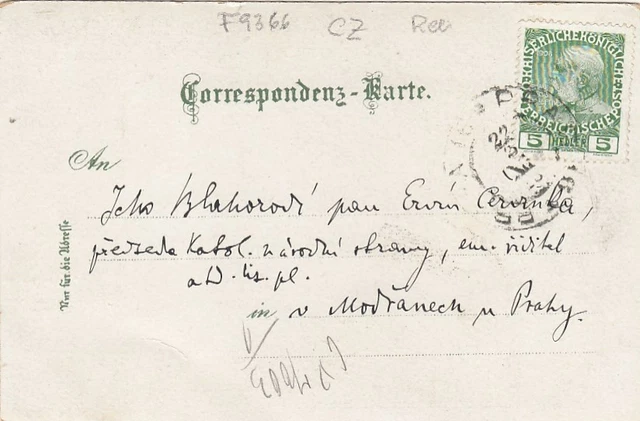 F9366 CZ Rev
Correspondenz-Karte.
KAISERLICHEKÖNIGLICHE
ÖSTERREICHISCHE
5 HELLER 5
An
Jeho Blahorodí pan Ervín Cervinka,
předseda Katol. národní strany, em. řiditel
a t.d. lis. pl.
in v Modřanech u Prahy.
Nur für die Adresse